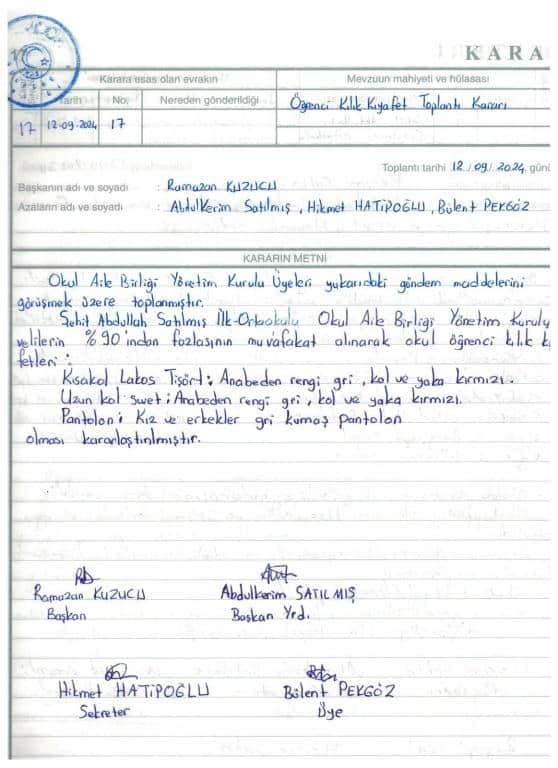 KARA
Karara esas olan evrakın
Mevzuun mahiyeti ve hülasası
Tarih No. Nereden gönderildiği
Öğrenci Kılık Kıyafet Toplantı Kararı
17 12-09-2024 17
Toplantı tarihi 12/09/2024 günü
Başkanın adı ve soyadı : Ramazan KUZUCU
Azaların adı ve soyadı : Abdulkerim Satılmış, Hikmet HATİPOĞLU, Bülent PEKGÖZ
KARARIN METNİ
Okul Aile Birliği Yönetim Kurulu Üyeleri yukarıdaki gündem maddelerini
görüşmek üzere toplanmıştır.
Şehit Abdullah Satılmış İlk-Ortaokulu Okul Aile Birliği Yönetim Kurulu
velilerin %90'ından fazlasının muvafakat alınarak okul öğrenci kılık k
fetleri :
Kısakol Lakos Tişört: Anabeden rengi gri, kol ve yaka kırmızı.
Uzun kol Swet: Anabeden rengi gri, kol ve yaka kırmızı.
Pantolon: Kız ve erkekler gri kumaş pantolon
olması kararlaştırılmıştır.
Ramazan KUZUCU
Başkan
Abdulkerim SATILMIŞ
Başkan Yrd.
Hikmet HATİPOĞLU
Sekreter
Bülent PEKGÖZ
Üye